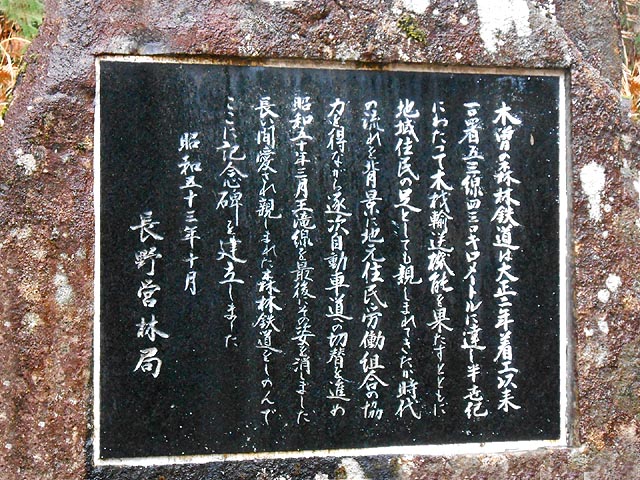 木曽の森林鉄道は大正二年着工以来
一署五三線四三〇キロメートルに達し半世紀
にわたって木材輸送機能を果たすとともに
地域住民の足としても親しまれてきたが時代
の流れを背景に地元住民労働組合の協
力を得ながら逐次自動車道への切替を進め
昭和五十年三月王滝線を最後にその姿を消しました
長い間愛され親しまれた森林鉄道をしのんで
ここに記念碑を建立しました
昭和五十三年十月
長野営林局